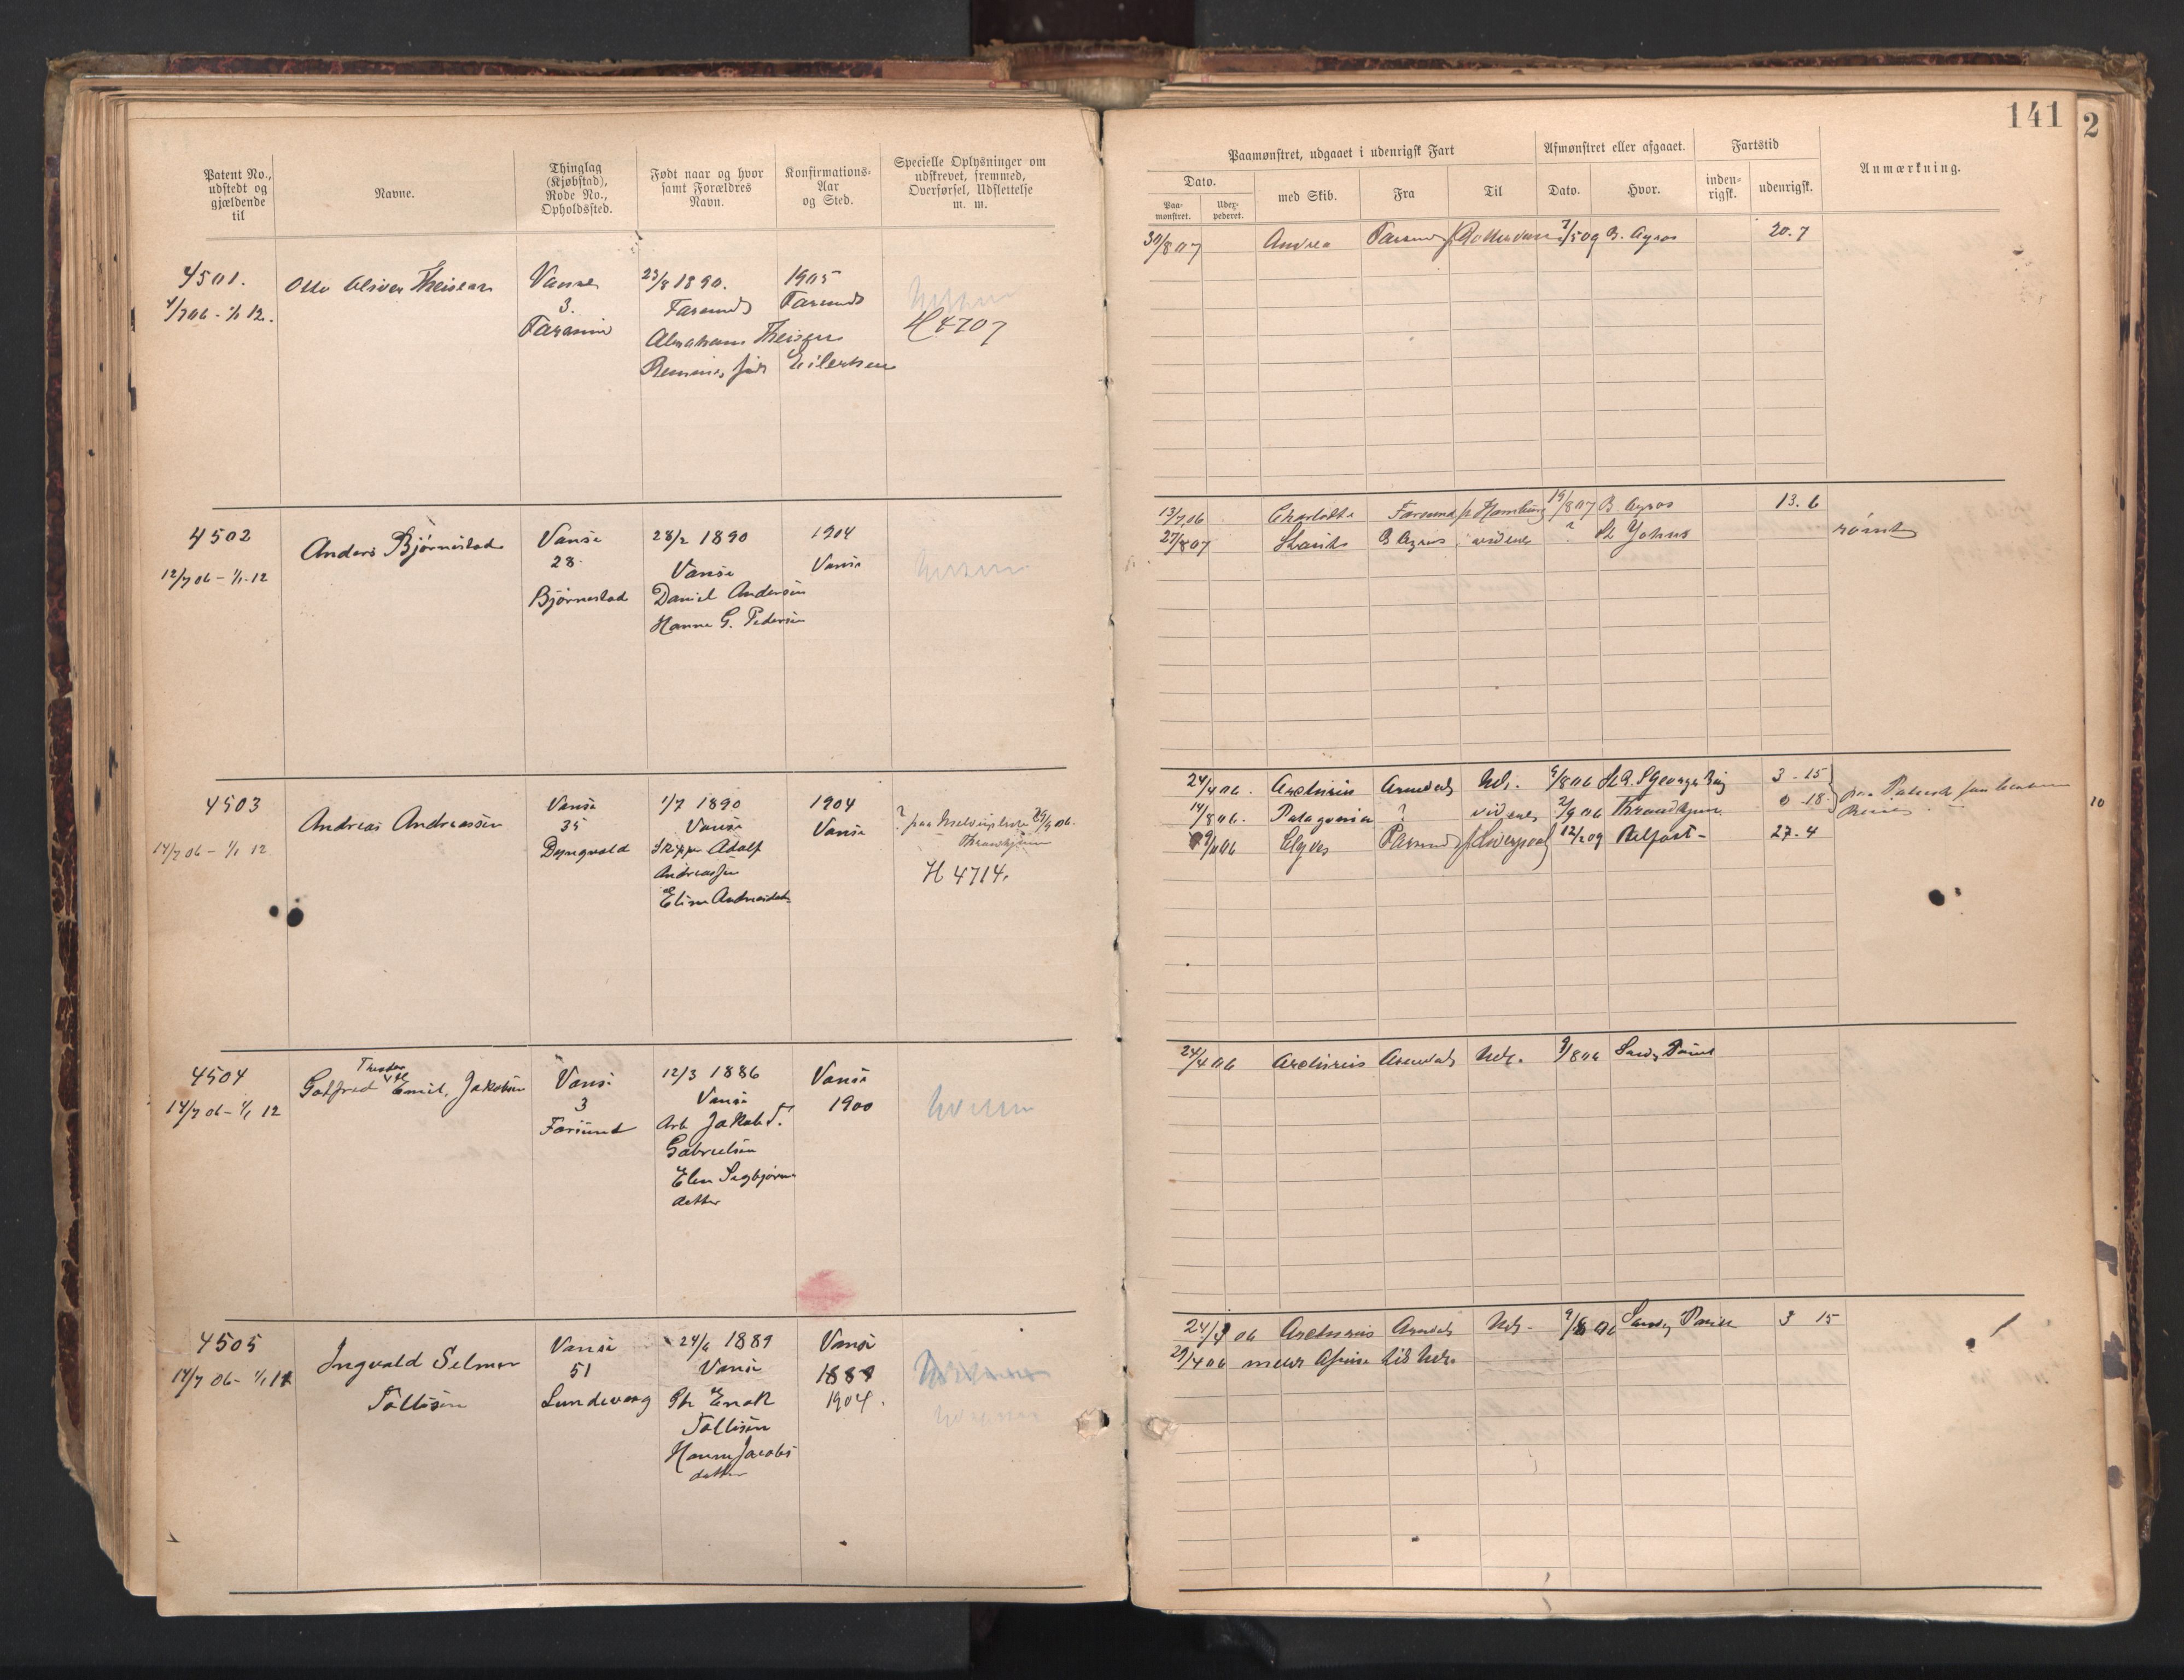 141
2
Patent No., udstedt og gjældende til
Navne.
Thinglag (Kjøbstad), Rode No., Opholdssted.
Født naar og hvor samt Forældres Navn.
Konfirmations-Aar og Sted.
Specielle Oplysninger om udskrevet, fremmed, Overførsel, Udslettelse m. m.
Paamønstret, udgaaet i udenrigsk Fart
Afmønstret eller afgaaet.
Fartstid
Anmærkning.
Dato.
med Skib.
Fra
Til
Dato.
Hvor.
inden-rigsk.
udenrigsk.
Paa-mønstret.
Udex-pederet.
4501.
4/7 06 - 1/1 12.
Otto Oliver Theisen
Vanse
3.
Farsund
23/8 1890.
Farsund
Abraham Theisen
født Eilertsen
1905
Farsund
H 4707
30/8 07 Andrea Farsund f Rotterdam 7/5 09 B. Ayres 20. 7
4502
12/7 06 - 1/1 12
Anders Bjørnestad
Vanse
28
Bjørnestad
28/2 1890
Vanse
Daniel Andersen
Hanne G. Pedersen
1904
Vanse
13/7 06 Charlotte Farsund f Hamburg 19/8 07 B Ayres 13. 6
27/8 07 B Ayres videre ? St Johns rømt
4503
14/7 06 - 1/1 12
Andreas Andreassen
Vanse
35
Dyngvold
1/7 1890
Vanse
Skipper Adolf
Andreassen
Elise Andreasdatr
1904
Vanse
H 4714.
24/4 06. Arcturus Arendal Udr. 9/8 06 St Georges Bay 3 - 15
14/8 06. Patagonia ? videre 2/9 06 Throndhjem 0 - 18
9/11 06 Farsund f Liverpool 12/2 09 Belfast - 27 - 4
10
4504
14/7 06 - 1/1 12
Theodor
Gotfred Emil Jakobsen
Vanse
3
Farsund
12/3 1886
Vanse
Arb Jakob T.
Gabrielsen
Elen Sigbjørns
datter
Vanse
1900
24/4 06 Arcturus Arendal Udr. 9/8 06 Sandy Point
4505
14/7 06 - 1/1 12
Ingvald Selmer
Tollisen
Vanse
51
Lundevaag
24/6 1889
Vanse
Enok
Tollisen
Hanne Jacobs
datter
Vanse
1889
1904.
24/4 06 Arcturus Arendal Udr. 9/8 06 Sandy Point 3 15
29/4 06